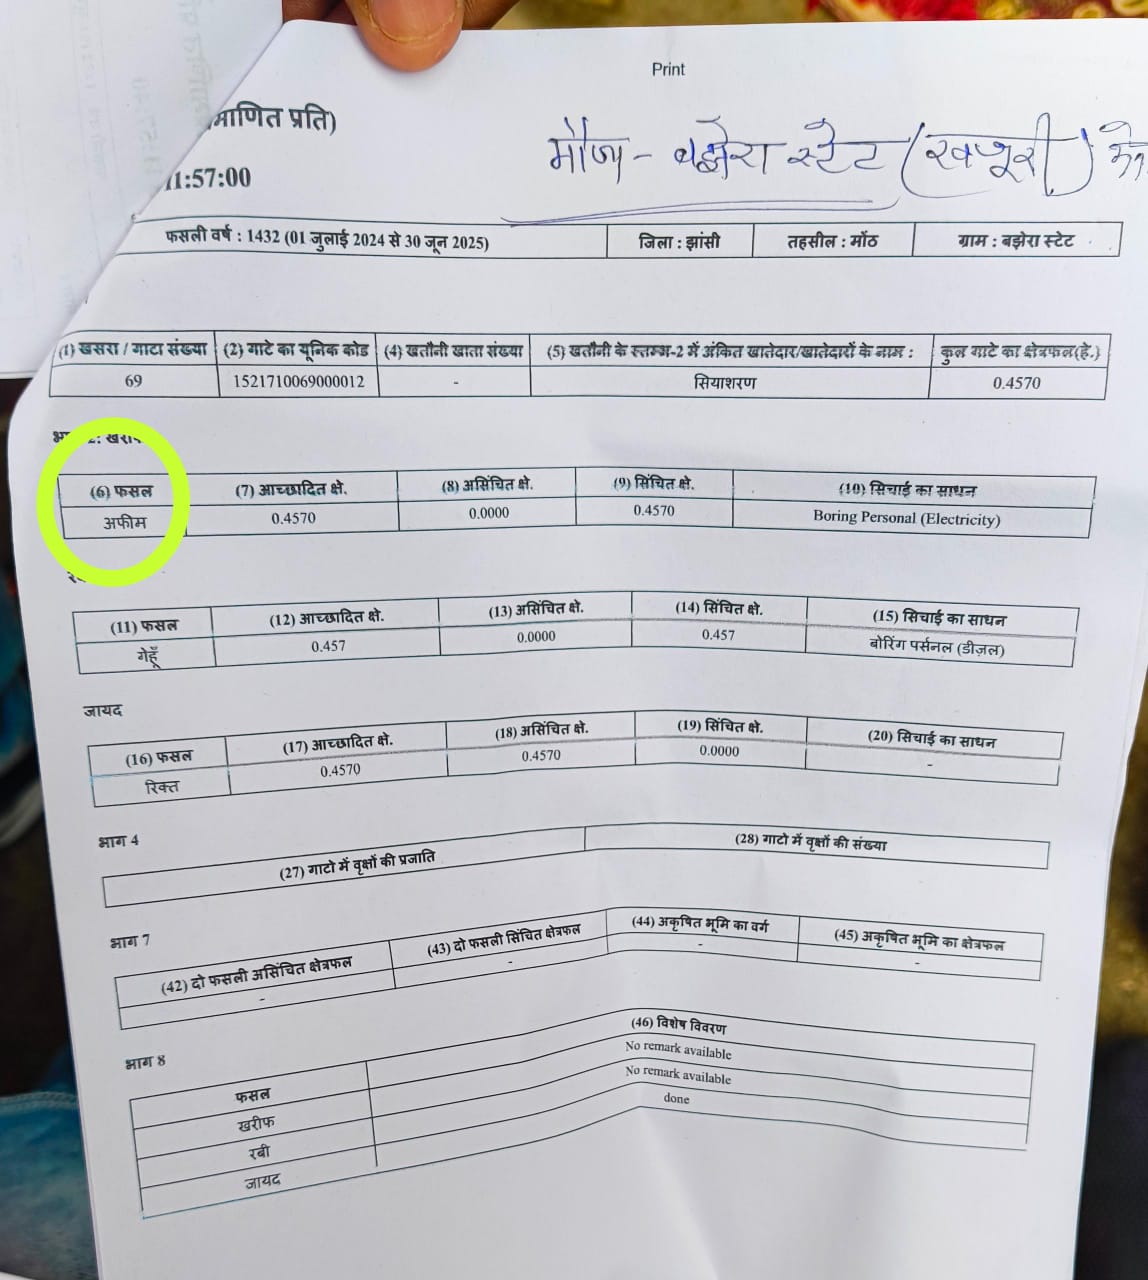 Print
माणित प्रति)
मौजा - बझेरा स्टेट (खजूरी)
11:57:00
फसली वर्ष : 1432 (01 जुलाई 2024 से 30 जून 2025) जिला : झांसी तहसील : मोंठ ग्राम : बझेरा स्टेट
(1) खसरा / गाटा संख्या (2) गाटे का यूनिक कोड (4) खतौनी खाता संख्या (5) खतौनी के स्तम्भ-2 में अंकित खातेदार/खातेदारों के नाम : कुल गाटे का क्षेत्रफल(हे.)
69 1521710069000012 - सियाशरण 0.4570
(6) फसल (7) आच्छादित क्षे. (8) असिंचित क्षे. (9) सिंचित क्षे. (10) सिचाई का साधन
अफीम 0.4570 0.0000 0.4570 Boring Personal (Electricity)
(11) फसल (12) आच्छादित क्षे. (13) असिंचित क्षे. (14) सिंचित क्षे. (15) सिचाई का साधन
गेहूँ 0.457 0.0000 0.457 बोरिंग पर्सनल (डीज़ल)
जायद
(16) फसल (17) आच्छादित क्षे. (18) असिंचित क्षे. (19) सिंचित क्षे. (20) सिचाई का साधन
रिक्त 0.4570 0.4570 0.0000 -
भाग 4
(27) गाटो में वृक्षों की प्रजाति (28) गाटो में वृक्षों की संख्या
भाग 7
(42) दो फसली असिंचित क्षेत्रफल (43) दो फसली सिंचित क्षेत्रफल (44) अकृषित भूमि का वर्ग (45) अकृषित भूमि का क्षेत्रफल
- - - -
भाग 8
फसल (46) विशेष विवरण
खरीफ No remark available
रबी No remark available
जायद done